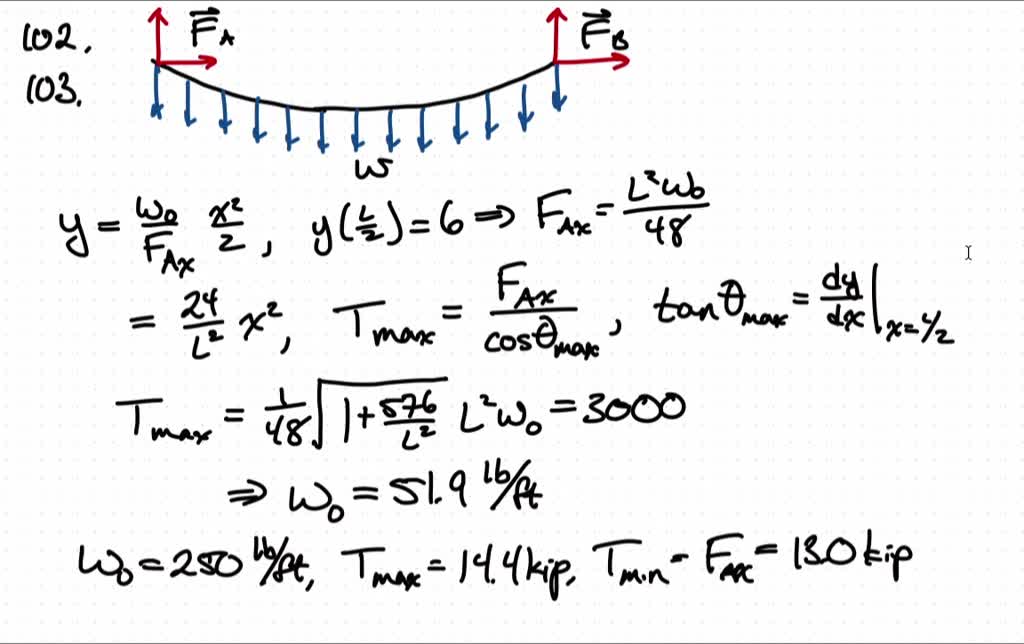 102. F⃗_A F⃗_B
103.
w
y = w₀/F_Ax x²/2, y(L/2) = 6 ⇒ F_Ax = L²w₀/48
= 24/L² x², T_max = F_Ax/cosθ_max, tanθ_max = dy/dx|x=L/2
T_max = 1/48 √(1+576/L²) L²w₀ = 3000
⇒ w₀ = 51.9 lb/ft
w₀ = 250 lb/ft, T_max = 14.4 kip, T_min = F_Ax = 13.0 kip